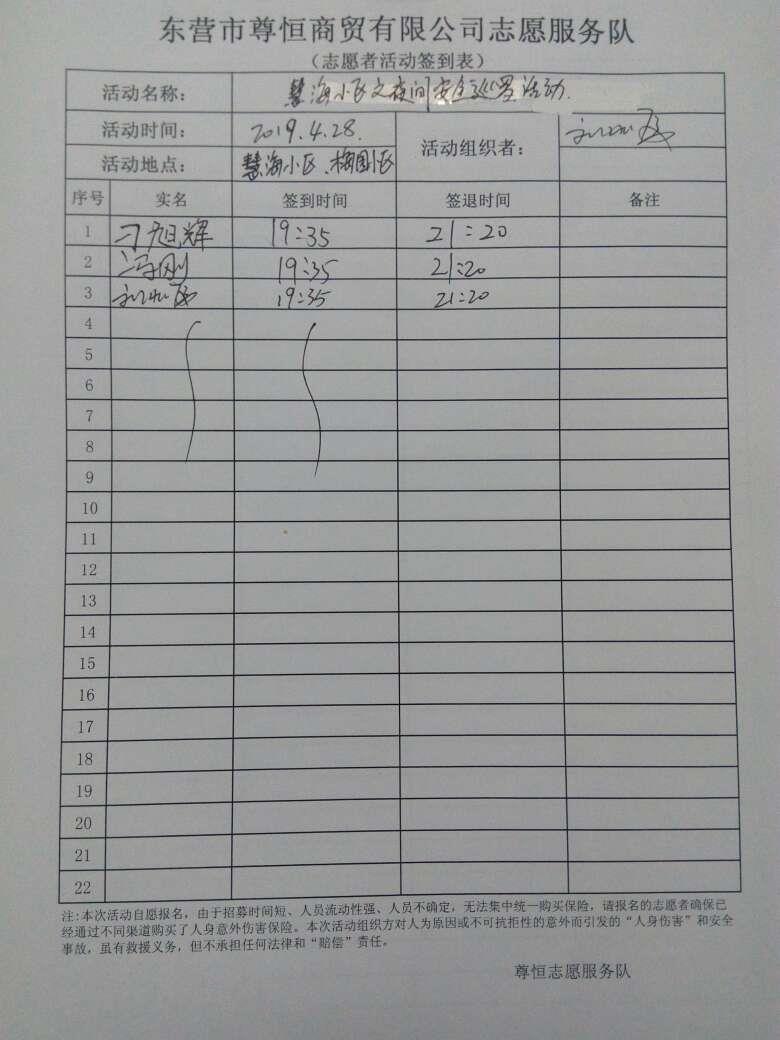 东营市尊恒商贸有限公司志愿服务队
（志愿者活动签到表）
活动名称： 慧海小区夜间安全巡逻活动.
活动时间： 2019.4.28.
活动组织者：
活动地点： 慧海小区、梅园小区
序号 实名 签到时间 签退时间 备注
1 刁旭辉 19:35 21:20
2 冯刚 19:35 21:20
3 19:35 21:20
4
5
6
7
8
9
10
11
12
13
14
15
16
17
18
19
20
21
22
注:本次活动自愿报名，由于招募时间短、人员流动性强、人员不确定，无法集中统一购买保险，请报名的志愿者确保已
经通过不同渠道购买了人身意外伤害保险。本次活动组织方对人为原因或不可抗拒性的意外而引发的“人身伤害”和安全
事故，虽有救援义务，但不承担任何法律和“赔偿”责任。
尊恒志愿服务队